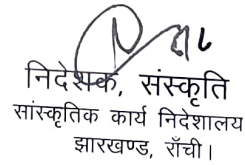 निदेशक, संस्कृति
सांस्कृतिक कार्य निदेशालय
झारखण्ड, राँची।